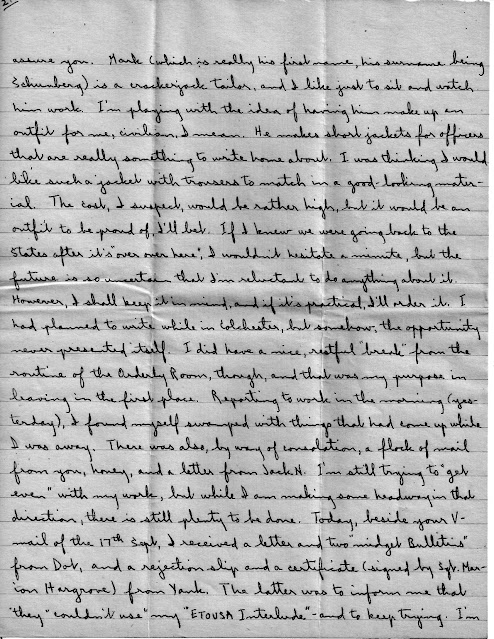 2.
assure you. Mark (which is really his first name, his surname being
Schumberg) is a crackerjack tailor, and I like just to sit and watch
him work. I'm playing with the idea of having him make up an
outfit for me, civilian, I mean. He makes short jackets for officers
that are really something to write home about. I was thinking I would
like such a jacket with trousers to match in a good-looking mater-
ial. The cost, I suspect, would be rather high, but it would be an
outfit to be proud of, I'll bet. If I knew we were going back to the
States after it's "over over here", I wouldn't hesitate a minute, but the
future is so uncertain that I'm reluctant to do anything about it.
However, I shall keep it in mind, and if it's practical, I'll order it. I
had planned to write while in Colchester, but somehow, the opportunity
never presented itself. I did have a nice, restful "break" from the
routine of the Orderly Room, though, and that was my purpose in
leaving in the first place. Reporting to work in the morning (yes-
terday), I found myself swamped with things that had come up while
I was away. There was also, by way of consolation, a flock of mail
from you, honey, and a letter from Jack N. I'm still trying to "get
even" with my work, but while I am making some headway in that
direction, there is still plenty to be done. Today, beside your V-
mail of the 17th Sept, I received a letter and two "midget Bulletins"
from Dot, and a rejection slip and a certificate (signed by Sgt. Mar-
ion Hargrove) from Yank. The latter was to inform me that
"they" couldn't use" my "ETOUSA Interlude" - and to keep trying. I'm